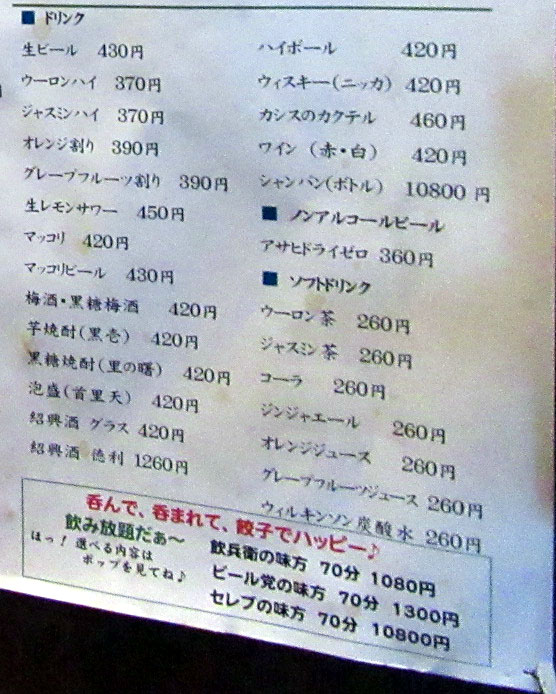 ■ ドリンク
生ビール 430円
ウーロンハイ 370円
ジャスミンハイ 370円
オレンジ割り 390円
グレープフルーツ割り 390円
生レモンサワー 450円
マッコリ 420円
マッコリビール 430円
梅酒・黒糖梅酒 420円
芋焼酎(黒壱) 420円
黒糖焼酎(里の曙) 420円
泡盛(首里天) 420円
紹興酒 グラス 420円
紹興酒 徳利 1260円
ハイボール 420円
ウィスキー(ニッカ) 420円
カシスのカクテル 460円
ワイン (赤・白) 420円
シャンパン(ボトル) 10800 円
■ ノンアルコールビール
アサヒドライゼロ 360円
■ ソフトドリンク
ウーロン茶 260円
ジャスミン茶 260円
コーラ 260円
ジンジャエール 260円
オレンジジュース 260円
グレープフルーツジュース 260円
ウィルキンソン炭酸水 260円
呑んで、呑まれて、餃子でハッピー♪
飲み放題だぁ〜
はっ！選べる内容は
ポップを見てね♪
飲兵衛の味方 70分 1080円
ビール党の味方 70分 1300円
セレブの味方 70分 10800円